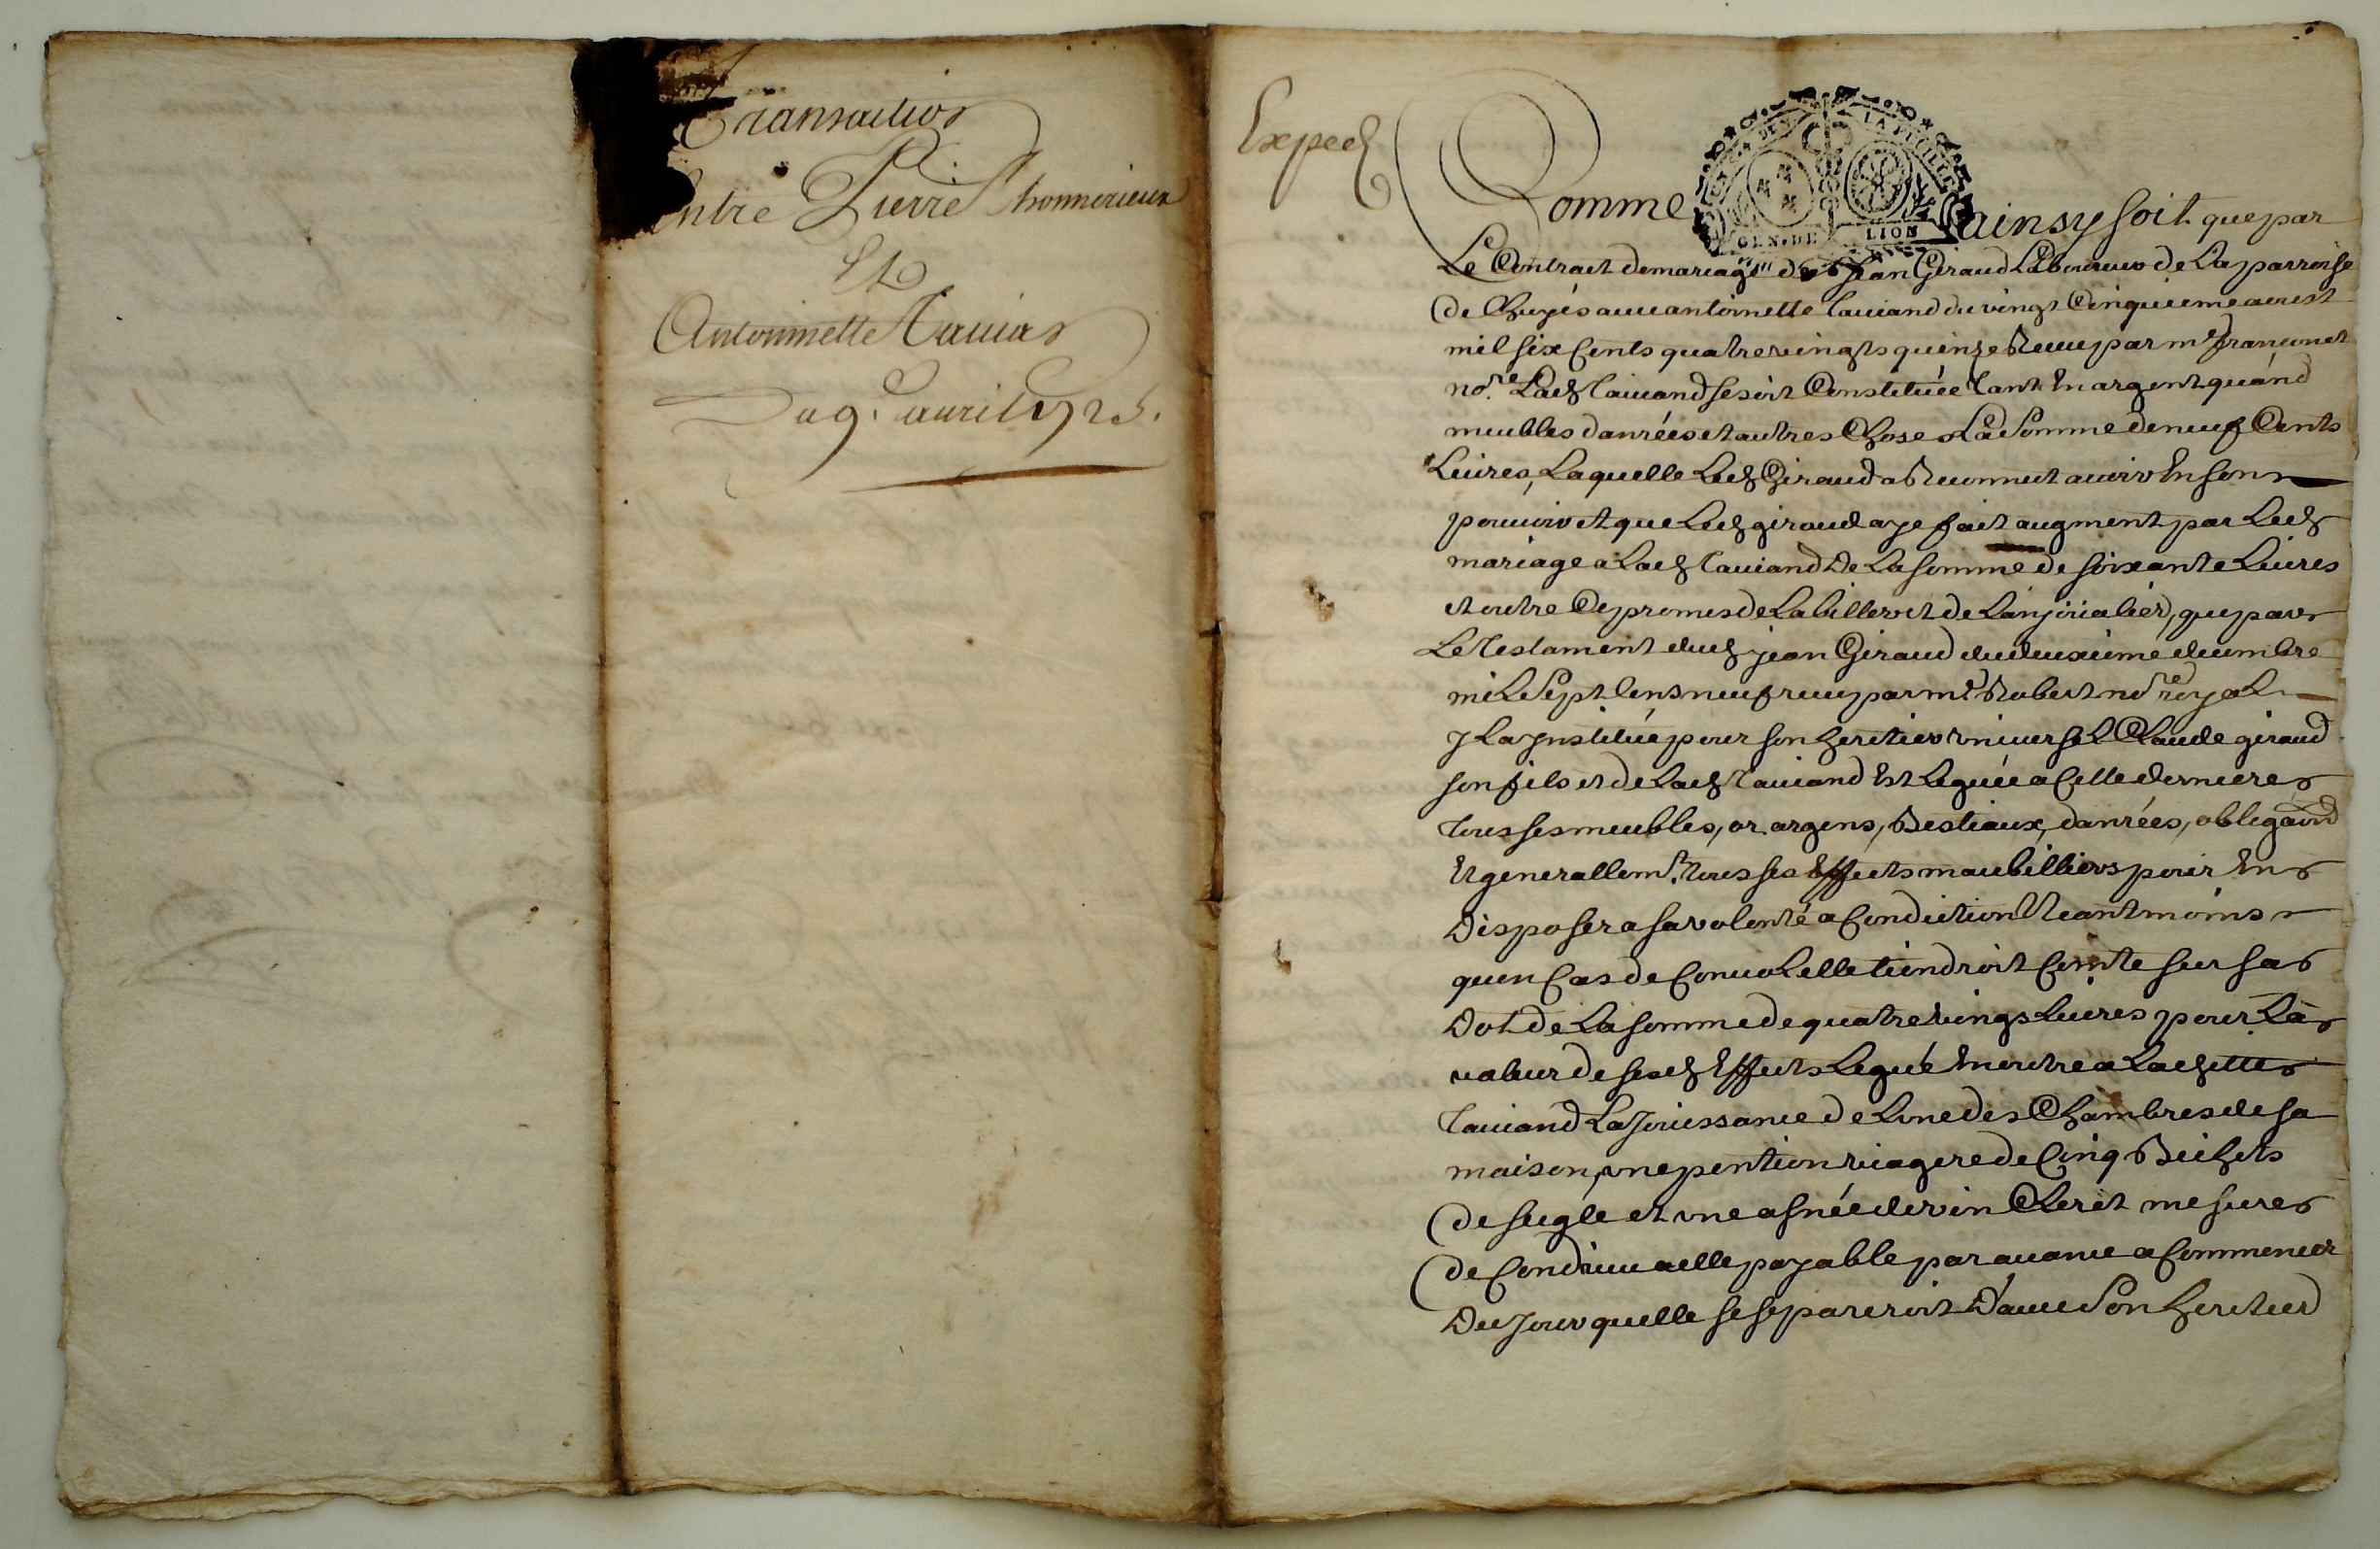 Transaction
Entre Pierre Thonnerieux
Et
Antoinette Tauian
Du 9. auril 1725.
Exped
Comme ainsy soit que par
GEN. DE LION
Le Contract de mariage de Jean Giraud Laboureur de La parroisse
de Chuyés auec antoinette Tauiand du vingt Cinquieme aoust
mil six Cents quatre vingts quinze Receu par me françonet
nore. Lad Tauiand se soit Constituée tant En argent qu'and
meubles danrées et autres Choses La Somme de neuf Cents
Liures, Laquelle Led Giraud a Reconnut auoir En son
pouuoir et que Led giraud aye fait augment par Led
mariage a Lad Tauiand De La somme de soixante Liures
et outre Ce promes de L'abiller et de L'anjoialier, que par
Le Testament dud jean Giraud du deuxiéme decembre
mil Sept Cens neuf receu par me Robert nore royal
Jl a Jnstitué pour son heritier vniuersel Claude giraud
son fils et de Lad Tauiand Et Leguée a Cette derniere
Tous ses meubles, or argens, Bestiaux, danrées, obligaõnd
Et generallemt. tous ses Effects maubilliers pour En
Disposer a sa volonté a Condiction Neantmoins
qu'en Cas de Conuol elle tiendroit Comte sur sa
Dot de La somme de quatre vings Liures pour La
valeur de sesd Effects Legué En outre a Lad
Tauiand La Jouissance de L'une des Chambres de sa
maison, vne pention viagere de Cinq Bichets
de seigle et vne asnée de vin Cleret mesure
de Condrieu a elle payable par auance a Commencer
Du Jour quelle se separeroit D'auec Son heritier